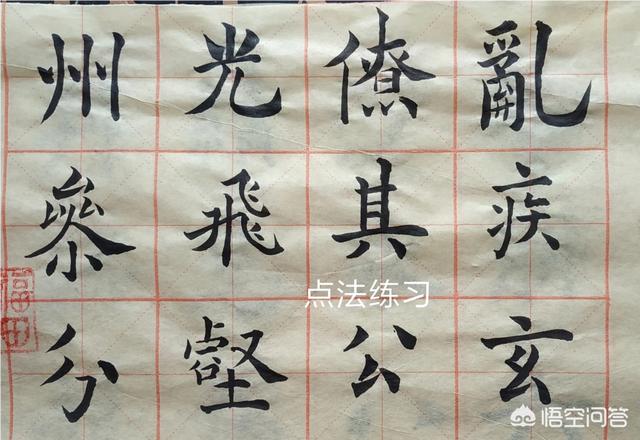 亂疾玄
僚其公
光飛壑
州參分
点法练习
福田
悟空问答